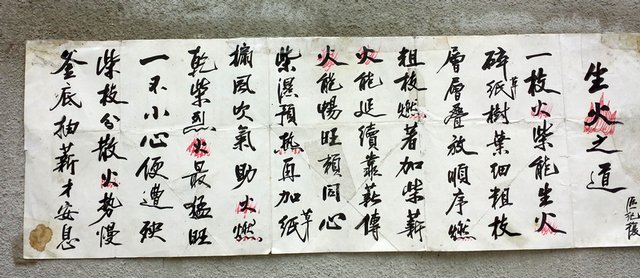 生火之道
區紀復
一枝火柴能生火
碎紙草樹葉細粗枝
層層叠放順序燃
粗枝燃著加柴薪
火能延續叢薪傳
火能暢旺須同心
柴濕預再加紙草
搧風吹氣助火燃
乾柴烈火最猛旺
一不小心便遭殃
柴枝分散火勢慢
釜底抽薪才安息